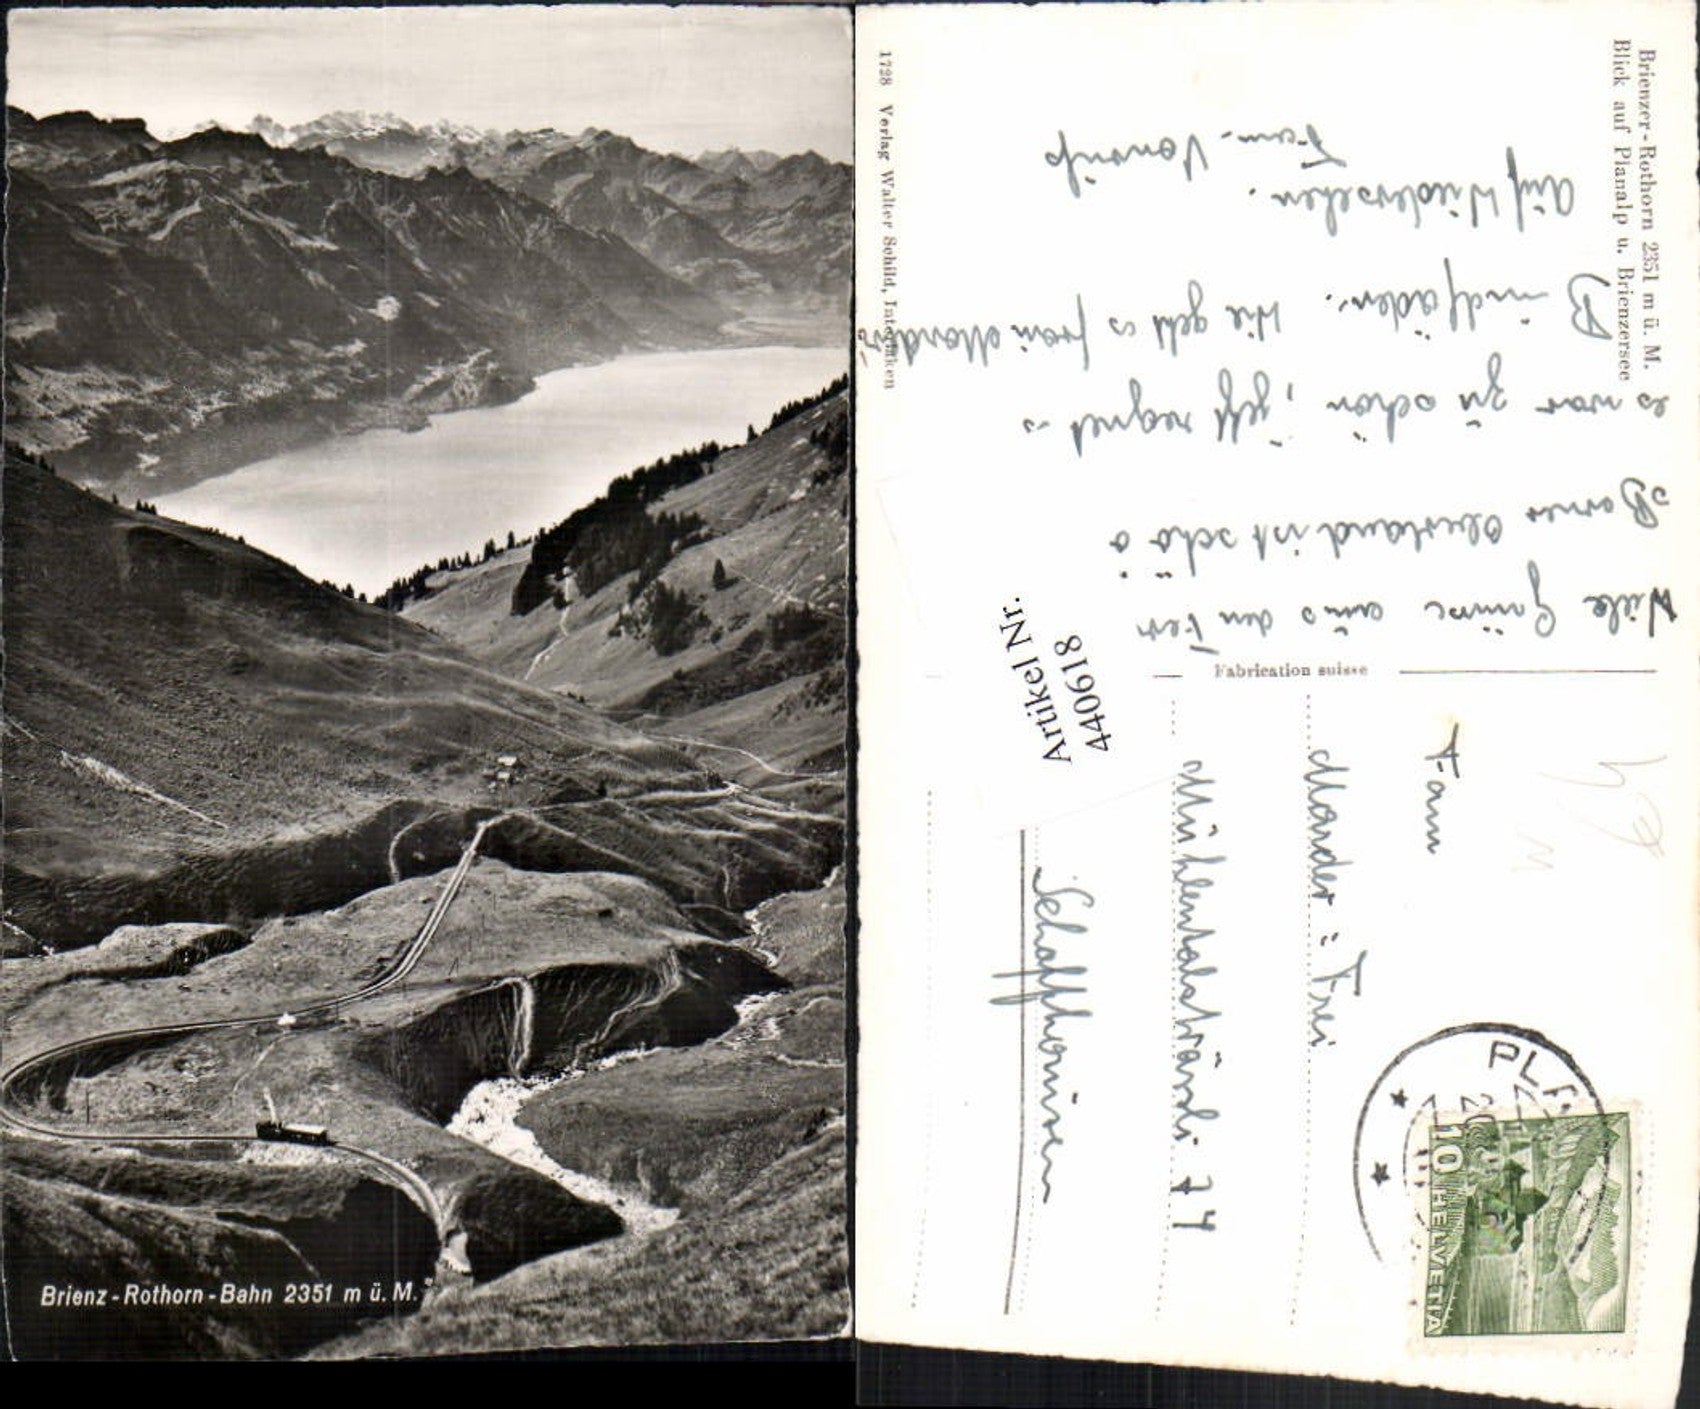 Brienz - Rothorn - Bahn 2351 m ü. M.
Brienzer-Rothorn 2351 m ü. M.
Blick auf Planalp u. Brienzersee
1728 Verlag Walter Schild, Interlaken
Fabrication suisse
Viele Grüsse aus den Fer
Berner Oberland ist schö
es war zu schön, jetzt regnet es
Bindfäden. Wie geht es
Auf Wiedersehen.
Fam.
Artikel Nr.
4406618
Fam
Mander - Frei
Mühlentalsträssli 74
Schaffhausen
PLA
10 HELVETIA